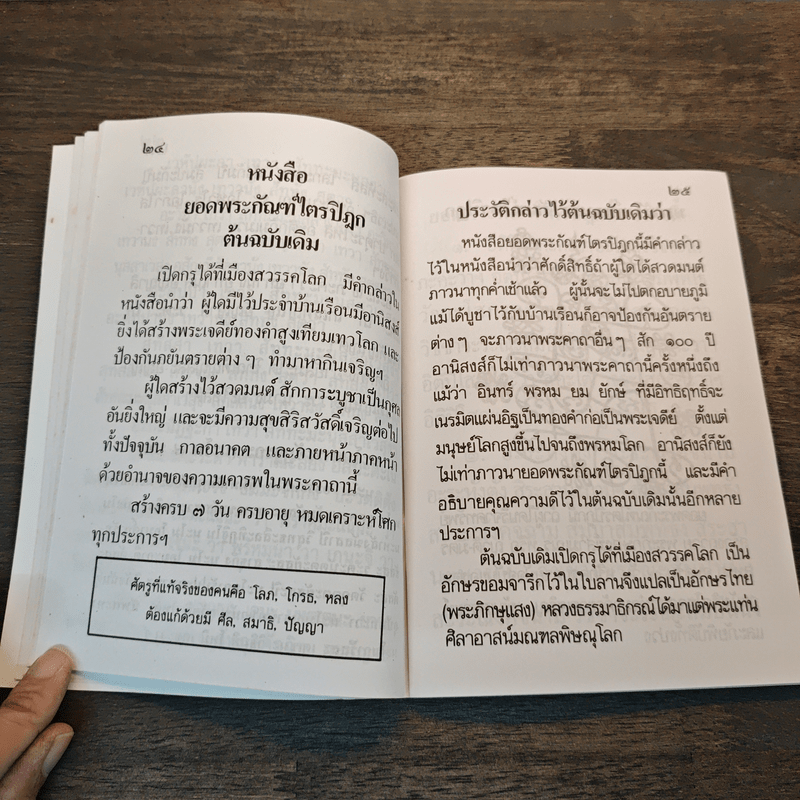 ๒๔
หนังสือ
ยอดพระกัณฑ์ไตรปิฎก
ต้นฉบับเดิม
เปิดกรุได้ที่เมืองสวรรคโลก มีคำกล่าวใน
หนังสือนำว่า ผู้ใดมีไว้ประจำบ้านเรือนมีอานิสงส์
ยิ่งได้สร้างพระเจดีย์ทองคำสูงเทียมเทวโลก และ
ป้องกันภยันตรายต่าง ๆ ทำมาหากินเจริญฯ
ผู้ใดสร้างไว้สวดมนต์ สักการะบูชาเป็นกุศล
อันยิ่งใหญ่ และจะมีความสุขสิริสวัสดิ์เจริญต่อไป
ทั้งปัจจุบัน กาลอนาคต และภายหน้าภาคหน้า
ด้วยอำนาจของความเคารพในพระคาถานี้
สร้างครบ ๗ วัน ครบอายุ หมดเคราะห์โศก
ทุกประการฯ
ศัตรูที่แท้จริงของคนคือ โลภ. โกรธ. หลง
ต้องแก้ด้วยมี ศีล. สมาธิ. ปัญญา
๒๕
ประวัติกล่าวไว้ต้นฉบับเดิมว่า
หนังสือยอดพระกัณฑ์ไตรปิฎกนี้มีคำกล่าว
ไว้ในหนังสือนำว่าศักดิ์สิทธิ์ถ้าผู้ใดได้สวดมนต์
ภาวนาทุกค่ำเช้าแล้ว ผู้นั้นจะไม่ไปตกอบายภูมิ
แม้ได้บูชาไว้กับบ้านเรือนก็อาจป้องกันอันตราย
ต่าง ๆ จะภาวนาพระคาถาอื่น ๆ สัก ๑๐๐ ปี
อานิสงส์ก็ไม่เท่าภาวนาพระคาถานี้ครั้งหนึ่งถึง
แม้ว่า อินทร์ พรหม ยม ยักษ์ ที่มีอิทธิฤทธิ์จะ
เนรมิตแผ่นอิฐเป็นทองคำก่อเป็นพระเจดีย์ ตั้งแต่
มนุษย์โลกสูงขึ้นไปจนถึงพรหมโลก อานิสงส์ก็ยัง
ไม่เท่าภาวนายอดพระกัณฑ์ไตรปิฎกนี้ และมีคำ
อธิบายคุณความดีไว้ในต้นฉบับเดิมนั้นอีกหลาย
ประการฯ
ต้นฉบับเดิมเปิดกรุได้ที่เมืองสวรรคโลก เป็น
อักษรขอมจารึกไว้ในใบลานจึงแปลเป็นอักษรไทย
(พระภิกษุแสง) หลวงธรรมาธิกรณ์ได้มาแต่พระแท่น
ศิลาอาสน์มณฑลพิษณุโลก